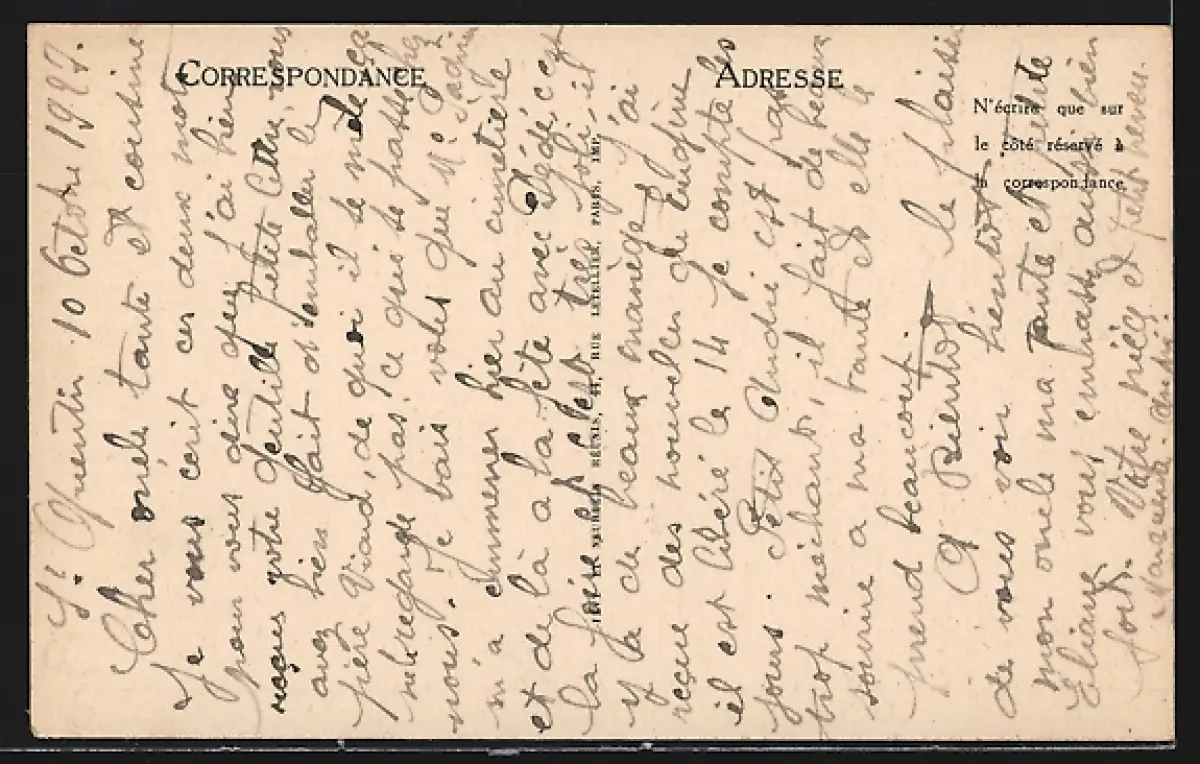 CORRESPONDANCE
ADRESSE
N'écrire que sur
le côté réservé à
la correspondance
RUE LETELLIER, PARIS, IMP.
St Quentin 10 Octobre 1927.
Cher oncle tante et cousine
Je vous écrit ces deux mots
pour vous dire que j'ai bien
reçus votre gentille petite lettre, vous
avez bien fait d'emballer le
père Viard, de quoi il se mèle ça
ne le regarde pas ce qui se passe chez
nous. Je vais vous dire que Mr
m'a emmener hier au cimetière
et de là a la fête avec Dédé, cet
la foire et c'est très joli, il
y a de beaux manège. J'ai
reçue des nouvelles de Eugène
il est libéré le 14 je compte les
jours. Petit André est pas
trop méchant, il fait de beau
sourire a ma tante et elle le
prend beaucoup.
A Bientôt le plaisir
de vous voir bientôt.
mon oncle ma tante et petite
Eliane vous embrasse aussi bien
fort. Votre nièce et petit neveu.